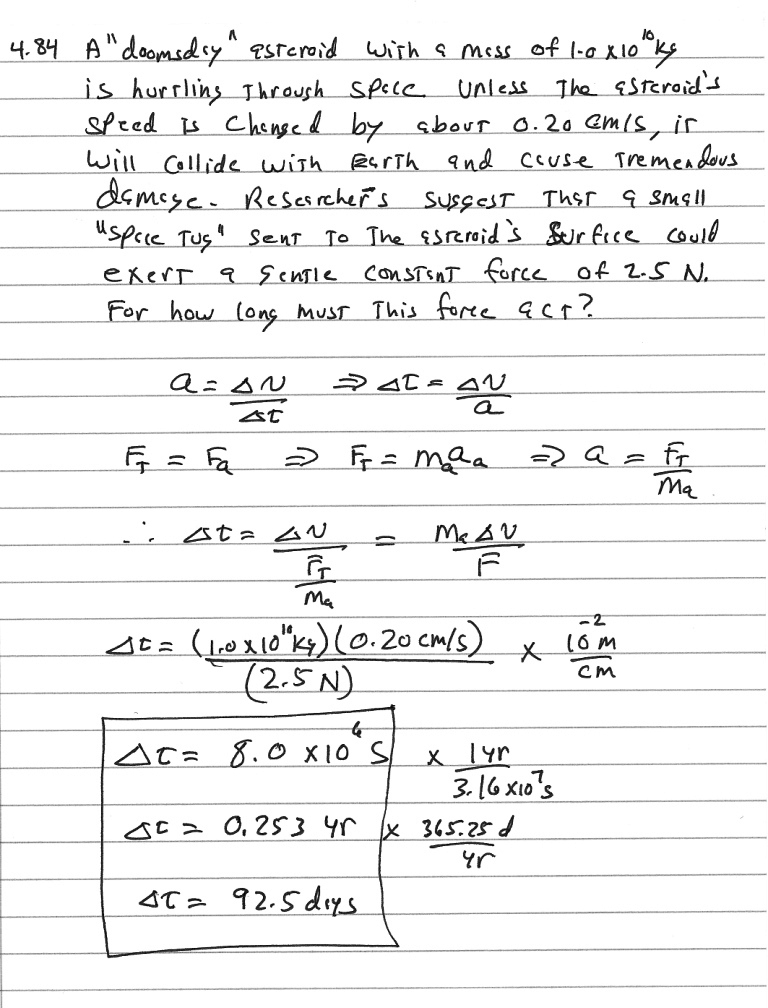 4.84 A "doomsday" asteroid with a mass of 1.0 x10¹⁰kg
is hurtling Through space Unless The asteroid's
speed is Changed by about 0.20 cm/s, it
will Collide with Earth and Cause Tremendous
damage. Researcher's suggest That a small
"space Tug" Sent To The asteroid's Surface Could
exert a gentle constant force of 2.5 N.
For how long must This force act?
a = ΔV/Δt ⇒ Δt = ΔV/a
F_T = F_a ⇒ F_T = m_a a_a ⇒ a = F_T/m_a
∴ Δt = ΔV/(F_T/m_a) = m_a ΔV/F
Δt = (1.0 x10¹⁰kg)(0.20 cm/s)/(2.5 N) x 10⁻² m/cm
Δt = 8.0 x10⁶ s x 1yr/3.16 x10⁷s
Δt = 0.253 yr x 365.25 d/yr
Δt = 92.5 days